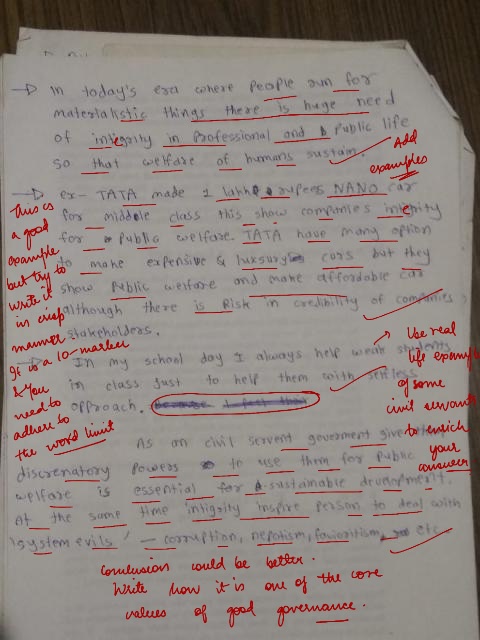 → In today's era where People run for
materialistic things there is huge need
of integrity in Professional and Public life
so that welfare of humans sustain.
Add
examples
→ ex- TATA made 1 lakh rupees NANO car
for middle class this show companies integrity
for Public welfare. TATA have many option
to make expensive & luxsury cars but they
show Public welfare and make affordable car
although there is Risk in credibility of companies
stakeholders.
This is
a good
example
but try to
write it
in crisp
manner.
It is a 10 marker
& you
need to
adhere to
the word limit
→ In my school day I always help weak students
in class Just to help them with selfless
approach.
→ Use real
life example
of some
civil servants
to enrich
your
answer
As an civil servent goverment give
discrenatory Powers to use them for Public
welfare is essential for sustainable development.
At the same time intigrity inspire person to deal with
'system evils' — corruption, nepotism, favioritism, etc
conclusion could be better.
Write how it is one of the core
values of good governance.